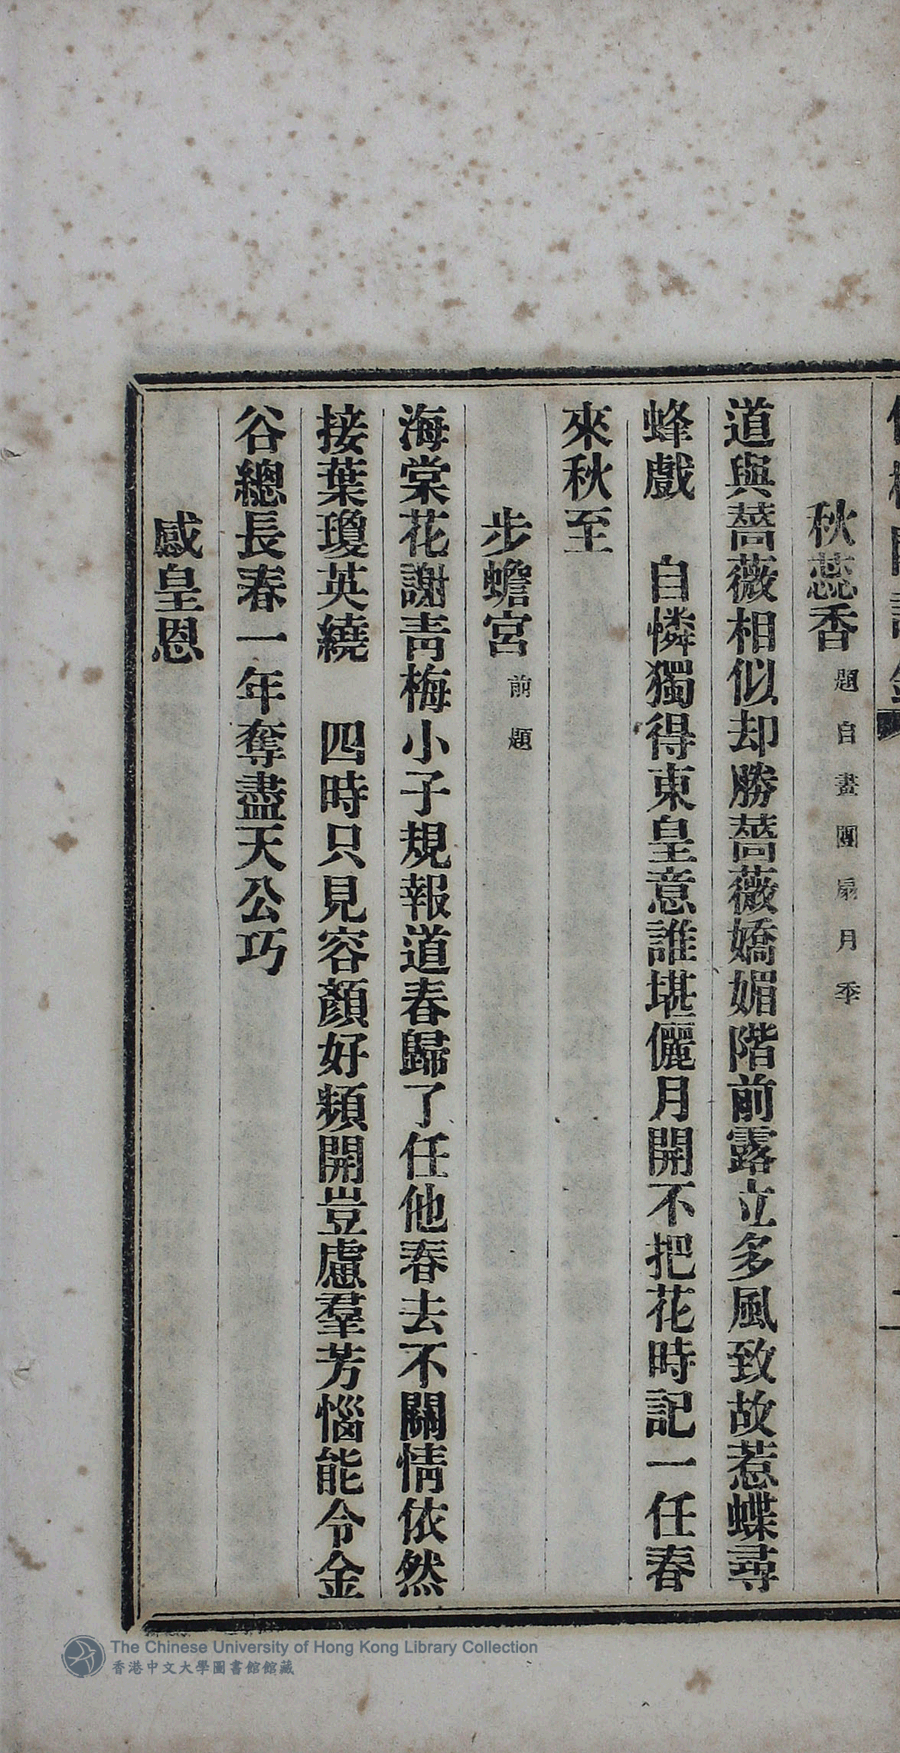 秋蕊香 題自畫團扇月季
道與薔薇相似却勝薔薇嬌媚階前露立多風致故惹蝶尋
蜂戲　自憐獨得東皇意誰堪儷月開不把花時記一任春
來秋至
步蟾宮 前題
海棠花謝青梅小子規報道春歸了任他春去不關情依然
接葉瓊英繞　四時只見容顏好頻開豈慮羣芳惱能令金
谷總長春一年奪盡天公巧
感皇恩
The Chinese University of Hong Kong Library Collection
香港中文大學圖書館館藏